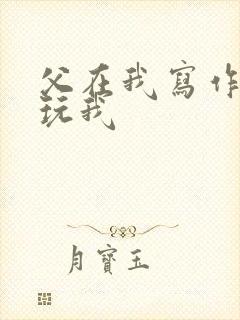 父在我寫作
玩我
月寶玉